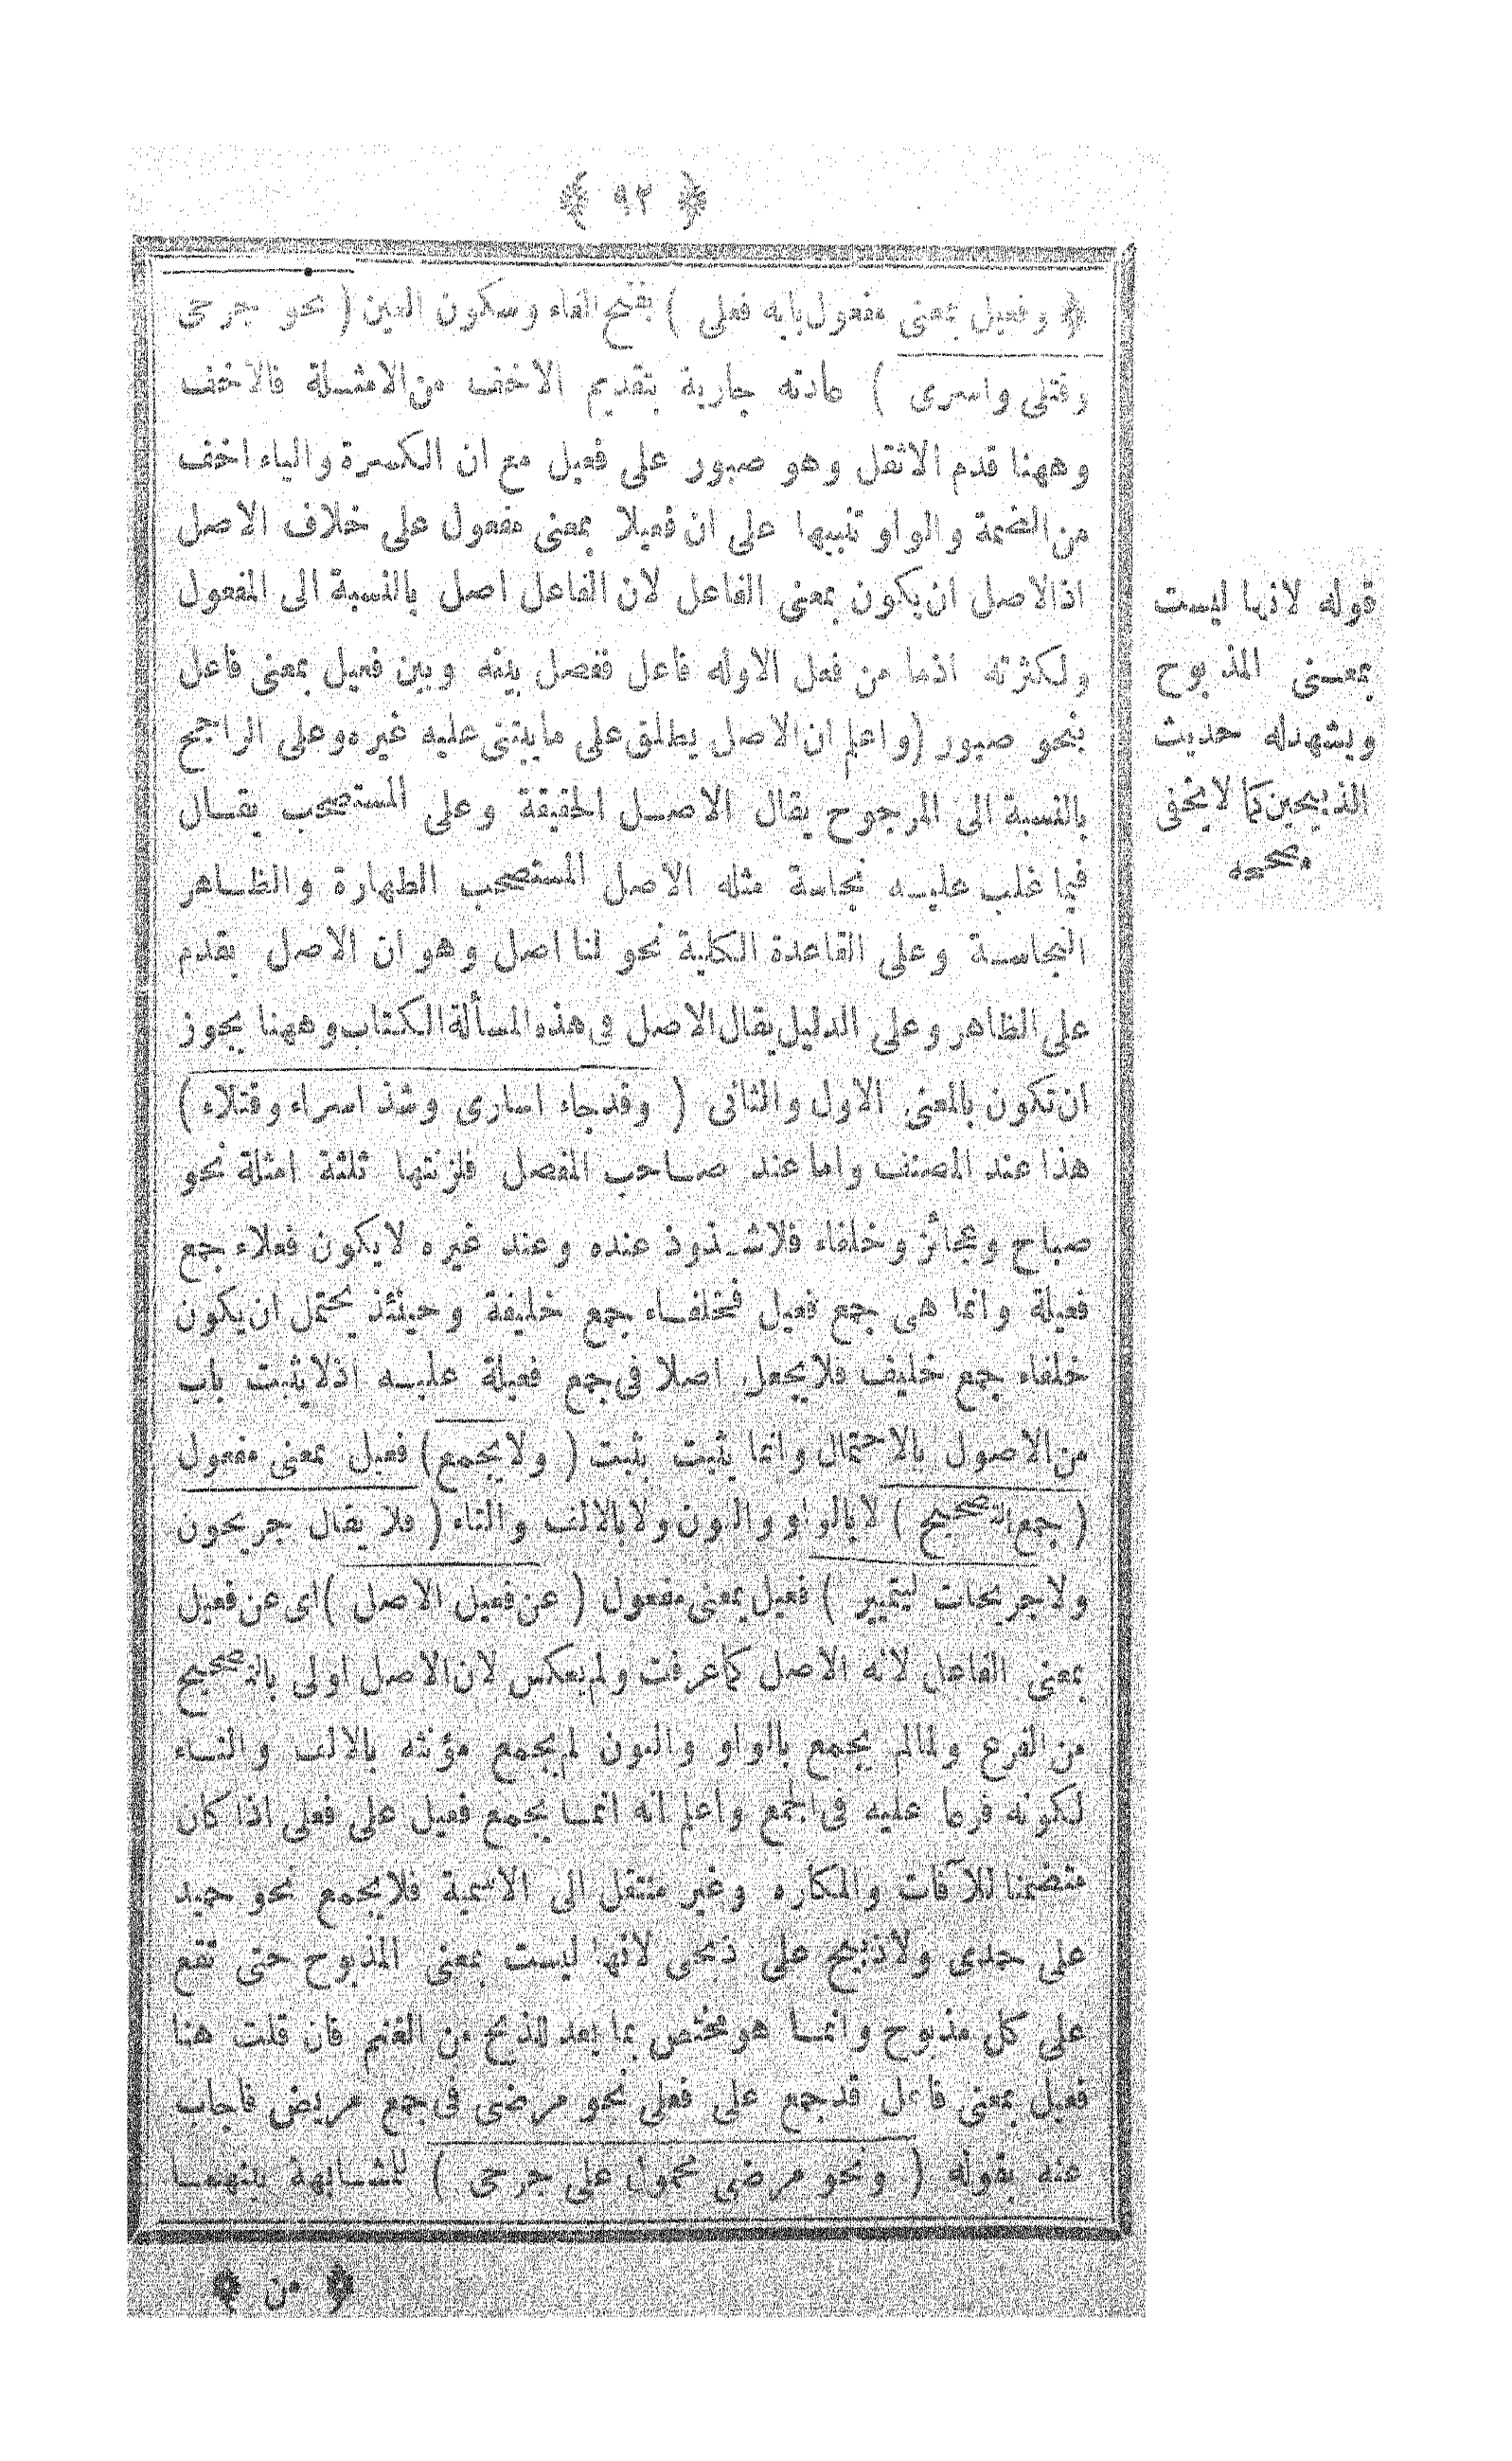 ﴿ ٩٢ ﴾
﴿ وفعيل بمعنى مفعول بابه فعلى ) بفتح الفاء وسكون العين ( نحو جرحى
وقتلى واسرى ) عادته جارية بتقديم الاخف من الامثلة فالاخف
وههنا قدم الاثقل وهو صبور على فعيل مع ان الكسرة والياء اخف
من الضمة والواو تنبيها على ان فعيلا بمعنى مفعول على خلاف الاصل
اذ الاصل ان يكون بمعنى الفاعل لان الفاعل اصل بالنسبة الى المفعول
ولكثرته اذما من فعل الاوله فاعل ففصل بينه وبين فعيل بمعنى فاعل
بنحو صبور (واعلم ان الاصل يطلق على مايبتنى عليه غيره وعلى الراجح
بالنسبة الى المرجوح يقال الاصل الحقيقة وعلى المستصحب يقال
فيما غلب عليه نجاسة مثله الاصل المستصحب الطهارة والظاهر
النجاسة وعلى القاعدة الكلية نحو لنا اصل وهو ان الاصل يقدم
على الظاهر وعلى الدليل يقال الاصل فى هذه المسألة الكتاب وههنا يجوز
ان تكون بالمعنى الاول والثانى ( وقدجاء اسارى وشذ اسراء وقتلاء )
هذا عند المصنف واما عند صاحب المفصل فلزنتها ثلثة امثلة نحو
صباح وعجائز وخلفاء فلاشذوذ عنده وعند غيره لايكون فعلاء جمع
فعيلة وانما هى جمع فعيل فخلفاء جمع خليفة وحينئذ يحتمل ان يكون
خلفاء جمع خليف فلايجعل اصلا فى جمع فعيلة عليه اذلايثبت باب
من الاصول بالاحتمال وانما يثبت بثبت ( ولايجمع ) فعيل بمعنى مفعول
( جمع التصحيح ) لابالواو والنون ولابالالف والتاء ( فلا يقال جريحون
ولاجريحات ليتميز ) فعيل بمعنى مفعول ( عن فعيل الاصل ) اى عن فعيل
بمعنى الفاعل لانه الاصل كماعرفت ولم يعكس لان الاصل اولى بالتصحيح
من الفرع ولمالم يجمع بالواو والنون لم يجمع مؤنثه بالالف والتاء
لكونه فرعا عليه فى الجمع واعلم انه انما يجمع فعيل على فعلى اذا كان
متضمنا للآفات والمكاره وغير منتقل الى الاسمية فلايجمع نحو حميد
على حمدى ولاذبيح على ذبحى لانها ليست بمعنى المذبوح حتى تقع
على كل مذبوح وانما هو مختص بما يعد للذبح من الغنم فان قلت هنا
فعيل بمعنى فاعل قدجمع على فعلى نحو مرضى فى جمع مريض فاجاب
عنه بقوله ( ونحو مرضى محمول على جرحى ) للمشابهة بينهما
﴿ من ﴾
قوله لانها ليست
بمعنى المذبوح
ويشهدله حديث
الذبيحين كما لايخفى
مصححه